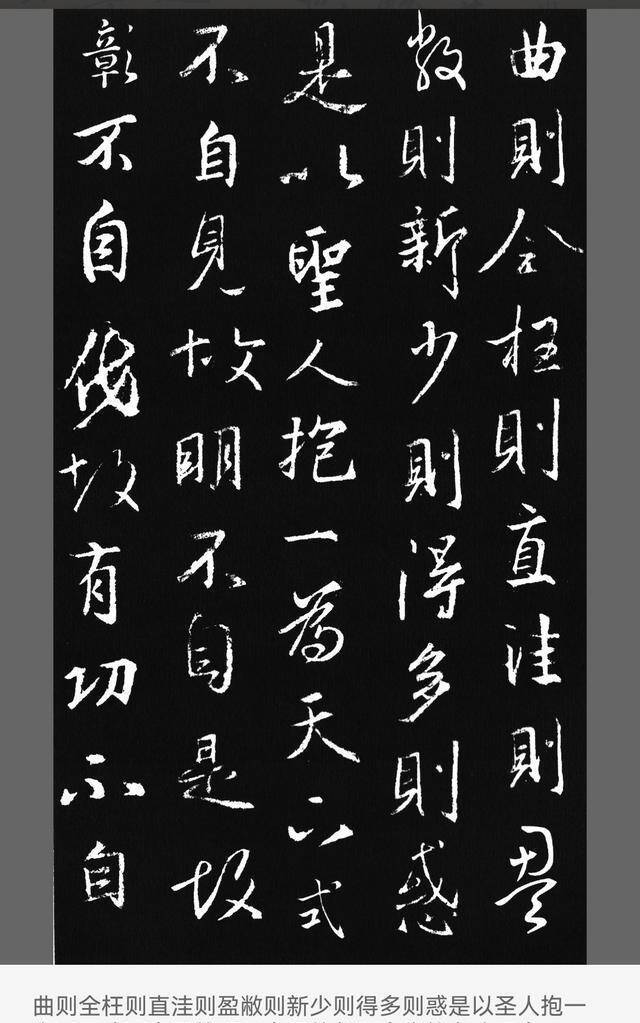 曲則全枉則直洼則盈
敝則新少則得多則惑
是以聖人抱一為天下式
不自見故明不自是故
彰不自伐故有功不自
曲则全枉则直洼则盈敝则新少则得多则惑是以圣人抱一